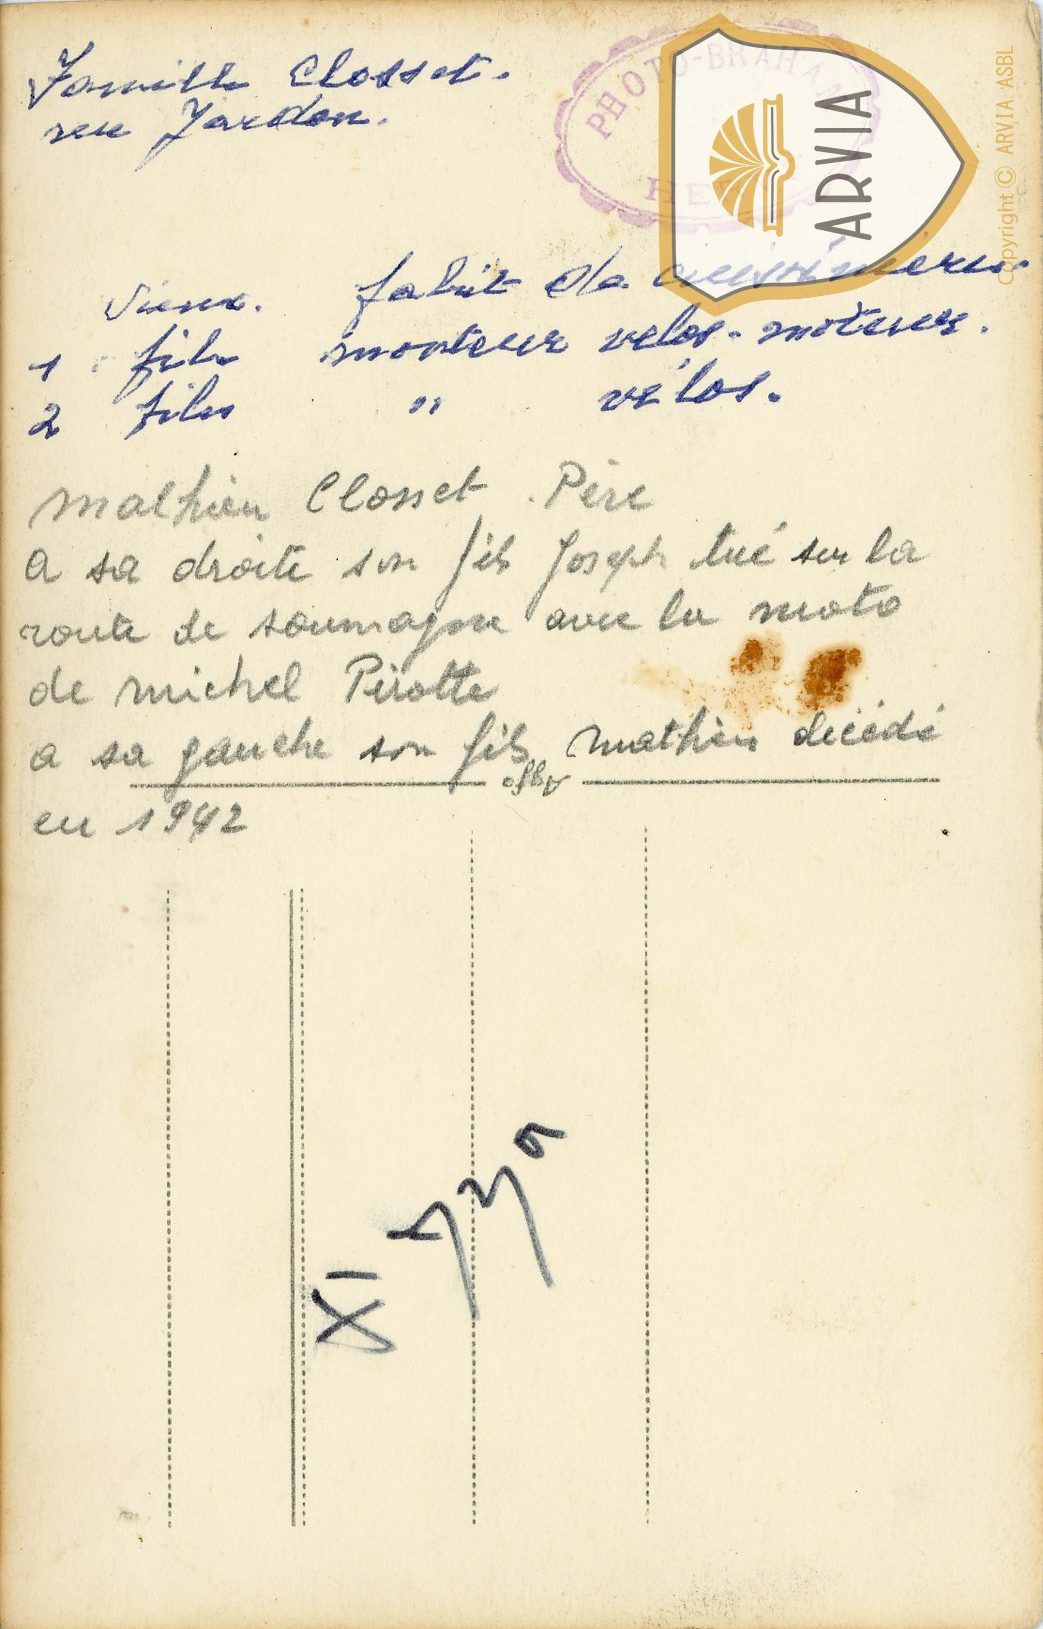 Famille Closset.
rue Jardon.
PHOTO-BRAHAM
HER
ARVIA
Copyright © ARVIA ASBL
Vieux. fabrit de cuisinieres.
1 fils monteur velos-moteurs.
2 fils " vélos.
Mathieu Closset. Père
a sa droite son fils Joseph tué sur la
route de soumagne avec la moto
de michel Pirotte
a sa gauche son fils mathieu décédé
en 1942
XI